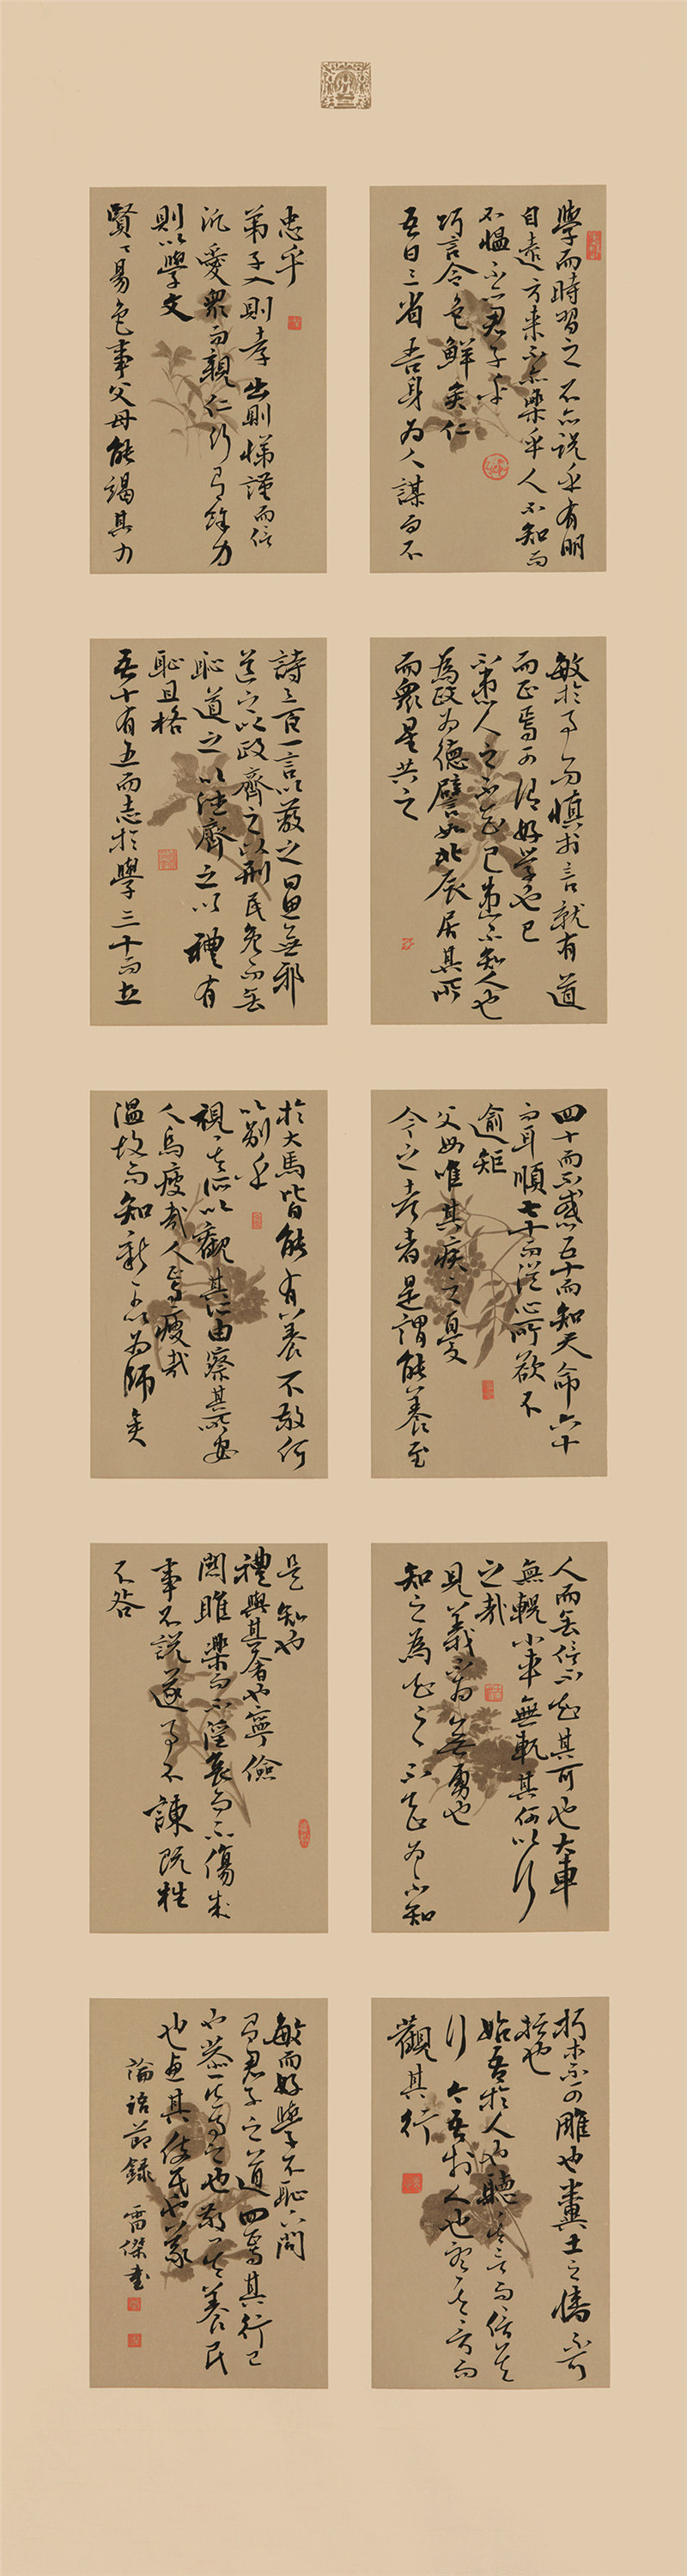 學而時習之不亦説乎有朋
自遠方來不亦樂乎人不知而
不慍不亦君子乎
巧言令色鮮矣仁
吾日三省吾身為人謀而不
忠乎
弟子入則孝出則悌謹而信
汎愛眾而親仁行有餘力
則以學文
賢賢易色事父母能竭其力
敏於事而慎於言就有道
而正焉可謂好學也已
不患人之不知己患不知人也
為政為德譬如北辰居其所
而眾星共之
詩三百一言以蔽之曰思無邪
道之以政齊之以刑民免而無
恥道之以德齊之以禮有
恥且格
吾十有五而志於學三十而立
四十而不惑五十而知天命六十
而耳順七十而從心所欲不
逾矩
父母唯其疾之憂
今之孝者是謂能養至
於犬馬皆能有養不敬何
以別乎
視其所以觀其所由察其所安
人焉廋哉人焉廋哉
溫故而知新可以為師矣
人而無信不知其可也大車
無輗小車無軏其何以行
之哉
見義不為無勇也
知之為知之不知為不知
是知也
禮與其奢也寧儉
關雎樂而不淫哀而不傷成
事不說遂事不諫既往
不咎
朽木不可雕也糞土之牆不可
杇也
始吾於人也聽其言而信其
行今吾於人也聽其言而
觀其行
敏而好學不恥下問
有君子之道四焉其行己
也恭其事上也敬其養民
也惠其使民也義
論語節錄 雷傑書